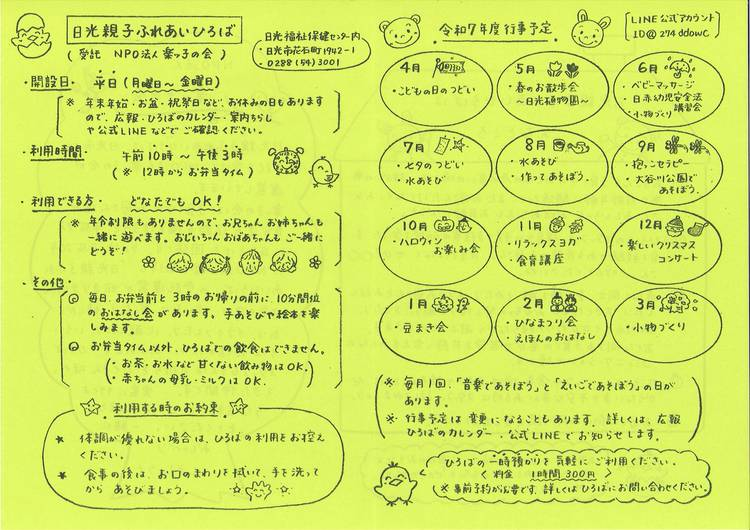 日光親子ふれあいひろば
(受託 NPO法人 楽っ子の会)
日光福祉保健センター内
・日光市花石町1942-1
・0288(54)3001
・開設日・ 平日(月曜日～金曜日)
※ 年末年始・お盆・祝祭日など、お休みの日もあります
ので、広報・ひろばのカレンダー・案内ちらし
や公式LINEなどでご確認ください。
・利用時間・ 午前10時～午後3時
(※ 12時からお弁当タイム)
・利用できる方・ どなたでもOK!
※ 年令制限もありませんので、お兄ちゃんお姉ちゃんも
一緒に遊べます。おじいちゃんおばあちゃんもご一緒に
どうぞ!
・その他・
◎ 毎日、お弁当前と3時のお帰りの前に、10分間位
のおはなし会があります。手あそびや絵本を楽
しみます。
◎ お弁当タイム以外、ひろばでの飲食はできません。
・お茶・お水など甘くない飲み物はOK。
・赤ちゃんの母乳・ミルクはOK.
利用する時のお約束
★ 体調が優れない場合は、ひろばの利用をお控え
ください。
★ 食事の後は、お口のまわりを拭いて、手を洗って
からあそびましょう。
令和7年度行事予定
LINE公式アカウント
ID@274ddowc
4月
・こどもの日のつどい
5月
・春のお散歩会
～日光植物園～
6月
・ベビーマッサージ
・日赤幼児安全法
講習会
・小物づくり
7月
・七夕のつどい
・水あそび
8月
・水あそび
・作ってあそぼう。
9月
・抱っこセラピー
・大谷川公園で
あそぼう。
10月
・ハロウィン
お楽しみ会
11月
・リラックスヨガ
・食育講座
12月
・楽しいクリスマス
コンサート
1月
・豆まき会
2月
・ひなまつり会
・えほんのおはなし
3月
・小物づくり
※ 毎月1回、「音楽であそぼう」と「えいごであそぼう」の日が
あります。
※ 行事予定は変更になることもあります。詳しくは、広報
ひろばのカレンダー・公式LINEでお知らせします。
ひろばの一時預かりを気軽にご利用ください。
(料金 1時間300円)
(※事前予約が必要です。詳しくはひろばにお問い合わせください。)